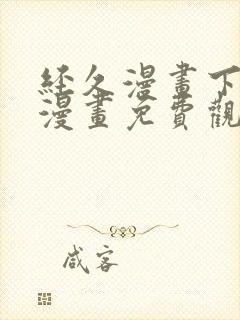 經久漫畫下
漫畫免費觀
咸客